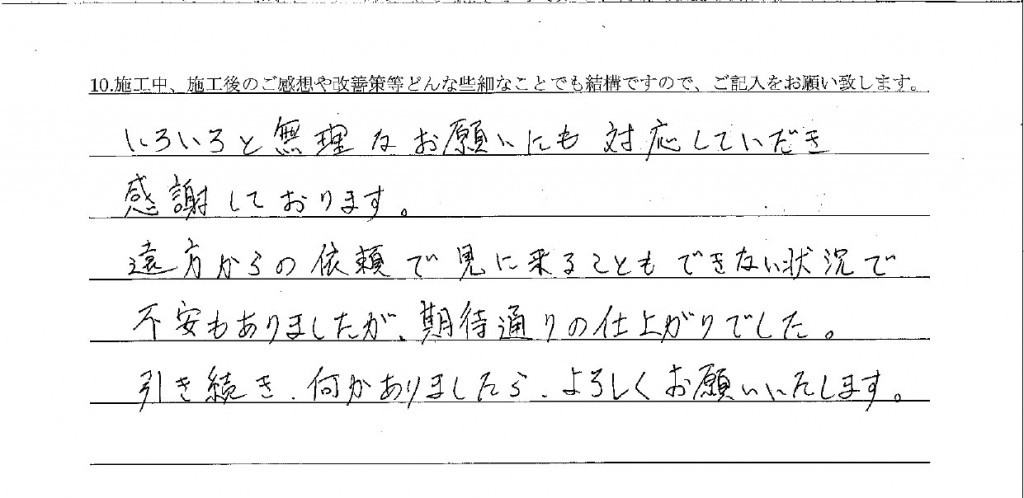 10.施工中、施工後のご感想や改善策等どんな些細なことでも結構ですので、ご記入をお願い致します。
いろいろと無理なお願いにも対応していだき
感謝しております。
遠方からの依頼で見に来ることもできない状況で
不安もありましたが、期待通りの仕上がりでした。
引き続き、何かありましたら、よろしくお願いいたします。